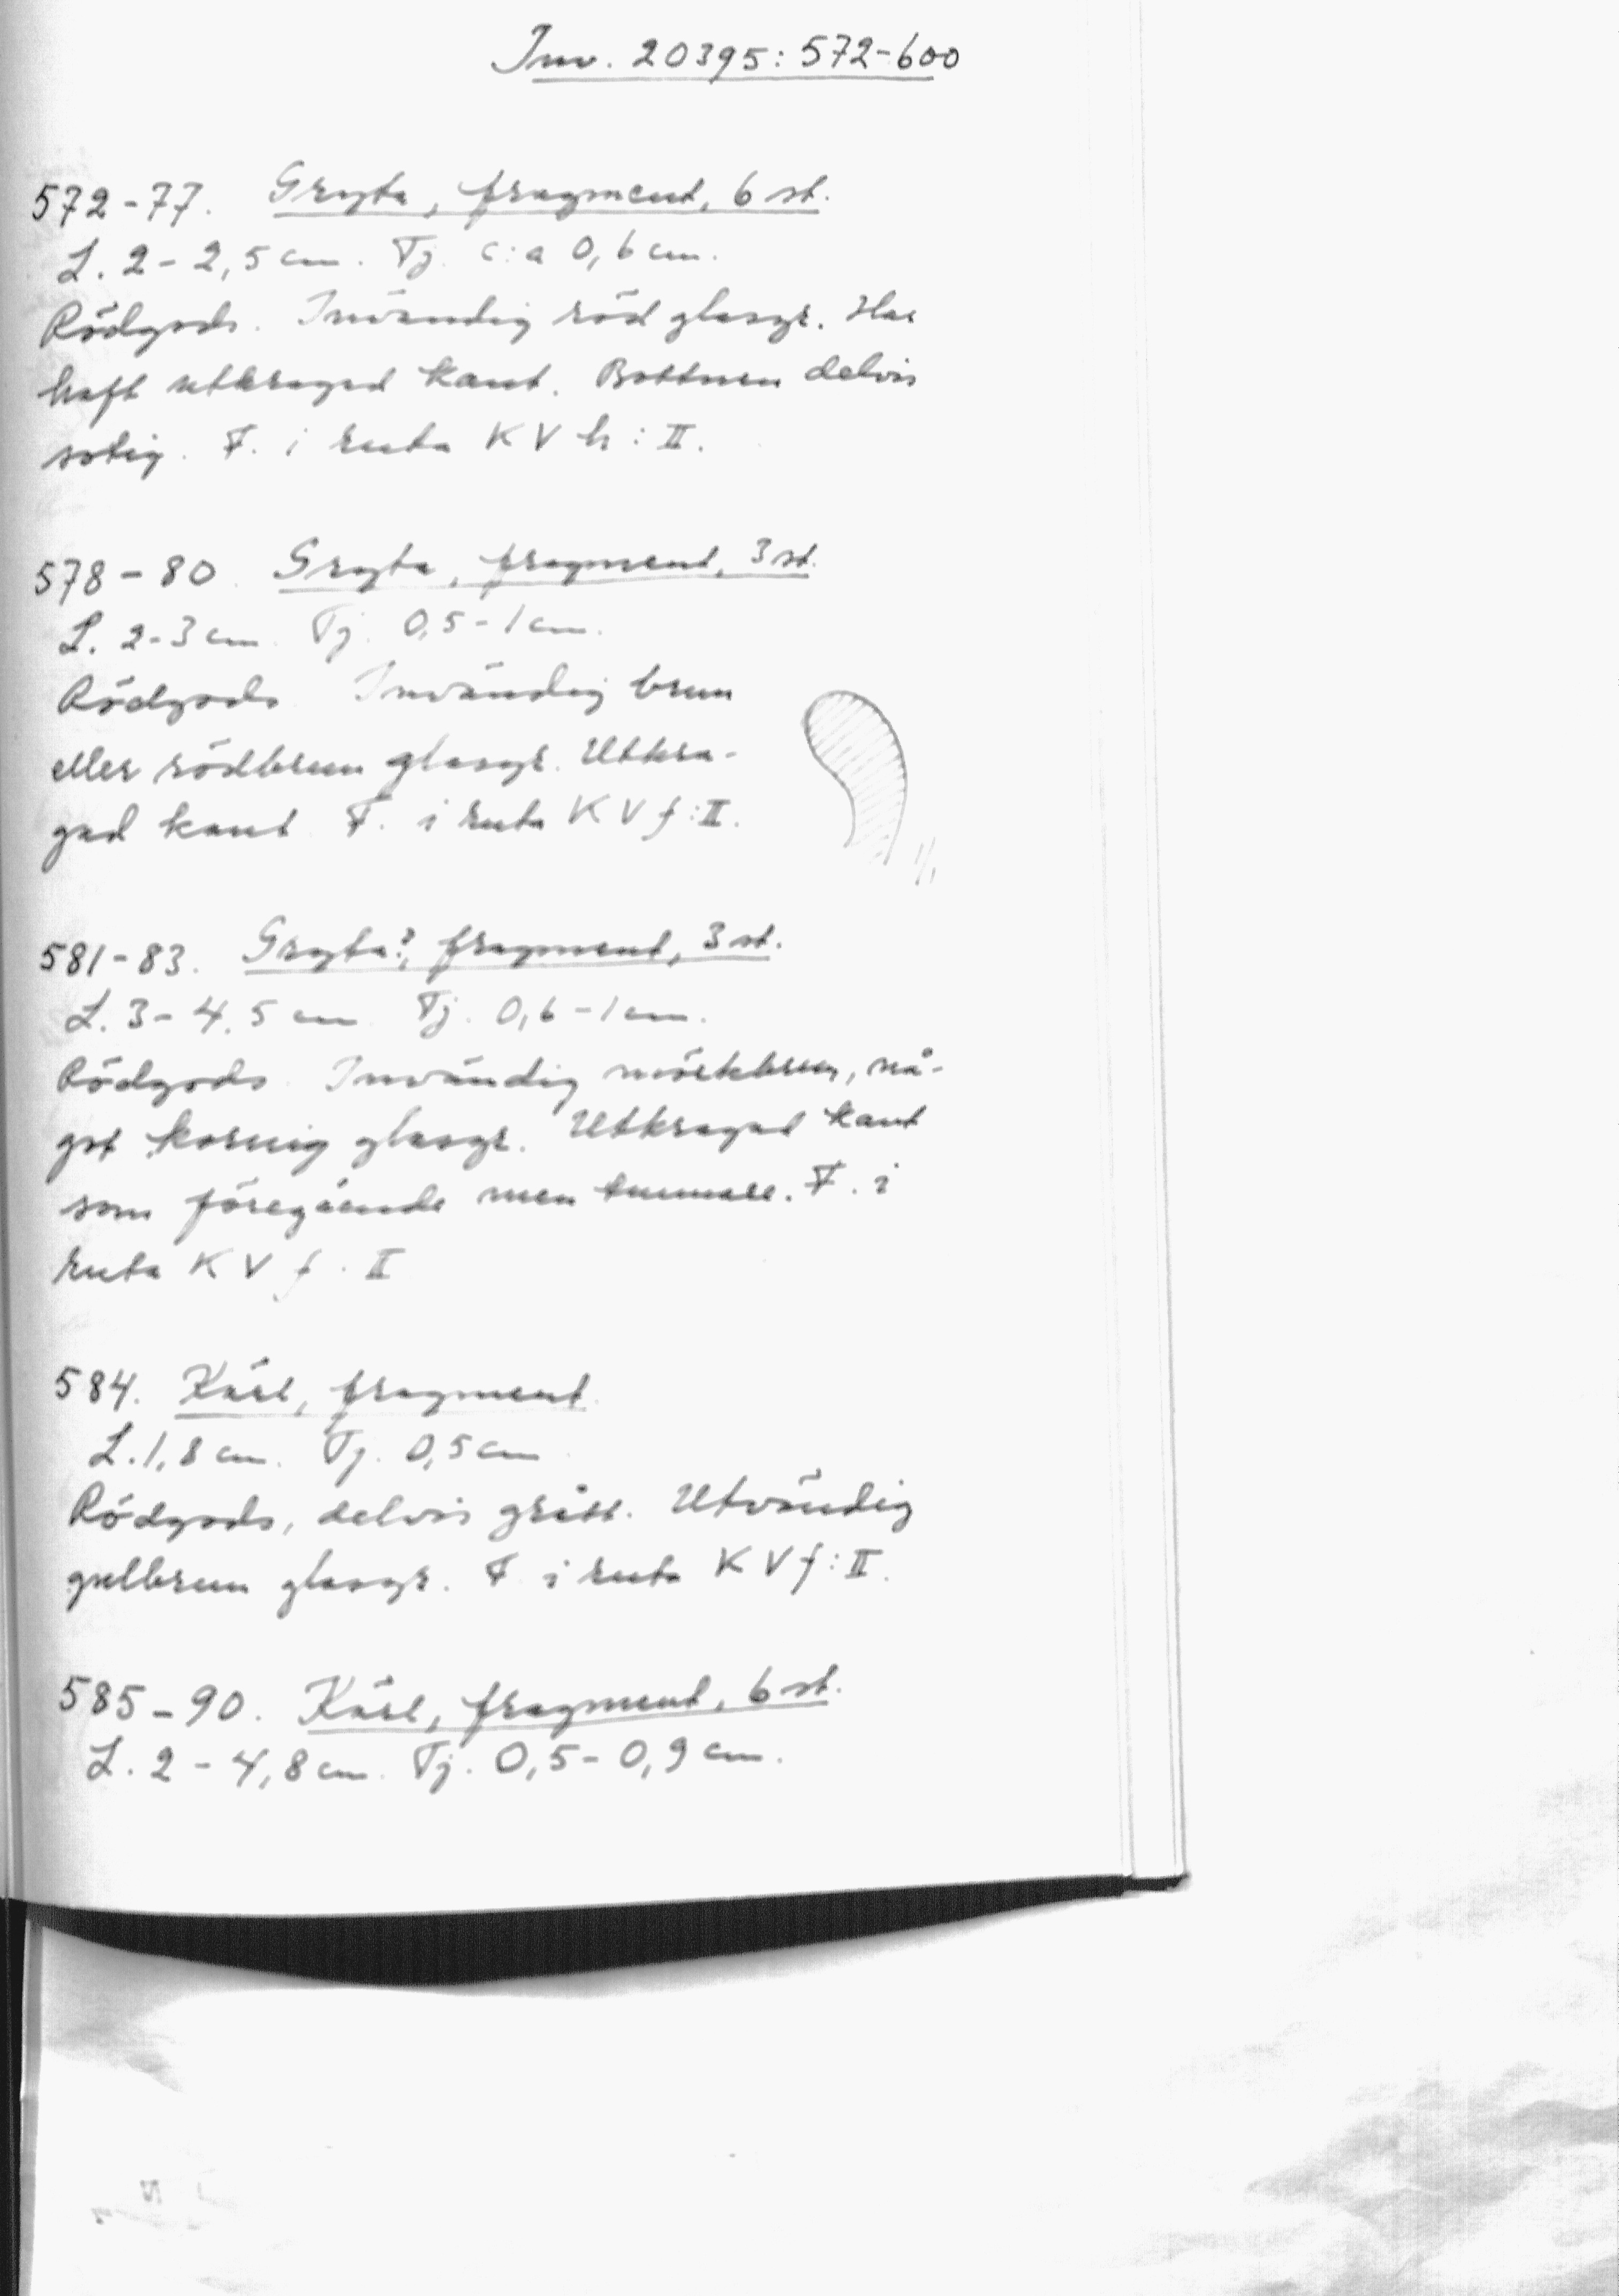 Inv. 20395:572-600
572-77. Gryta, fragment, 6 st.
L. 2-2,5 cm. Tj. c:a 0,6 cm.
Rödgods. Invändig röd glasyr. Har
haft utkragad kant. Bottnen delvis
sotig. F. i ruta KV h:II.
578-80. Gryta, fragment, 3 st.
L. 2-3 cm. Tj. 0,5-1 cm.
Rödgods. Invändig brun
eller rödbrun glasyr. Utkra-
gad kant. F. i ruta KV f:II.
1/1
581-83. Gryta?, fragment, 3 st.
L. 3-4,5 cm. Tj. 0,6-1 cm.
Rödgods. Invändig mörkbrun, nå-
got kornig glasyr. Utkragad kant
som föregående men tunnare. F. i
ruta KV f:II
584. Kärl, fragment.
L. 1,8 cm. Tj. 0,5 cm
Rödgods, delvis grått. Utvändig
gulbrun glasyr. F. i ruta KV f:II.
585-90. Kärl, fragment, 6 st.
L. 2-4,8 cm. Tj. 0,5-0,9 cm.